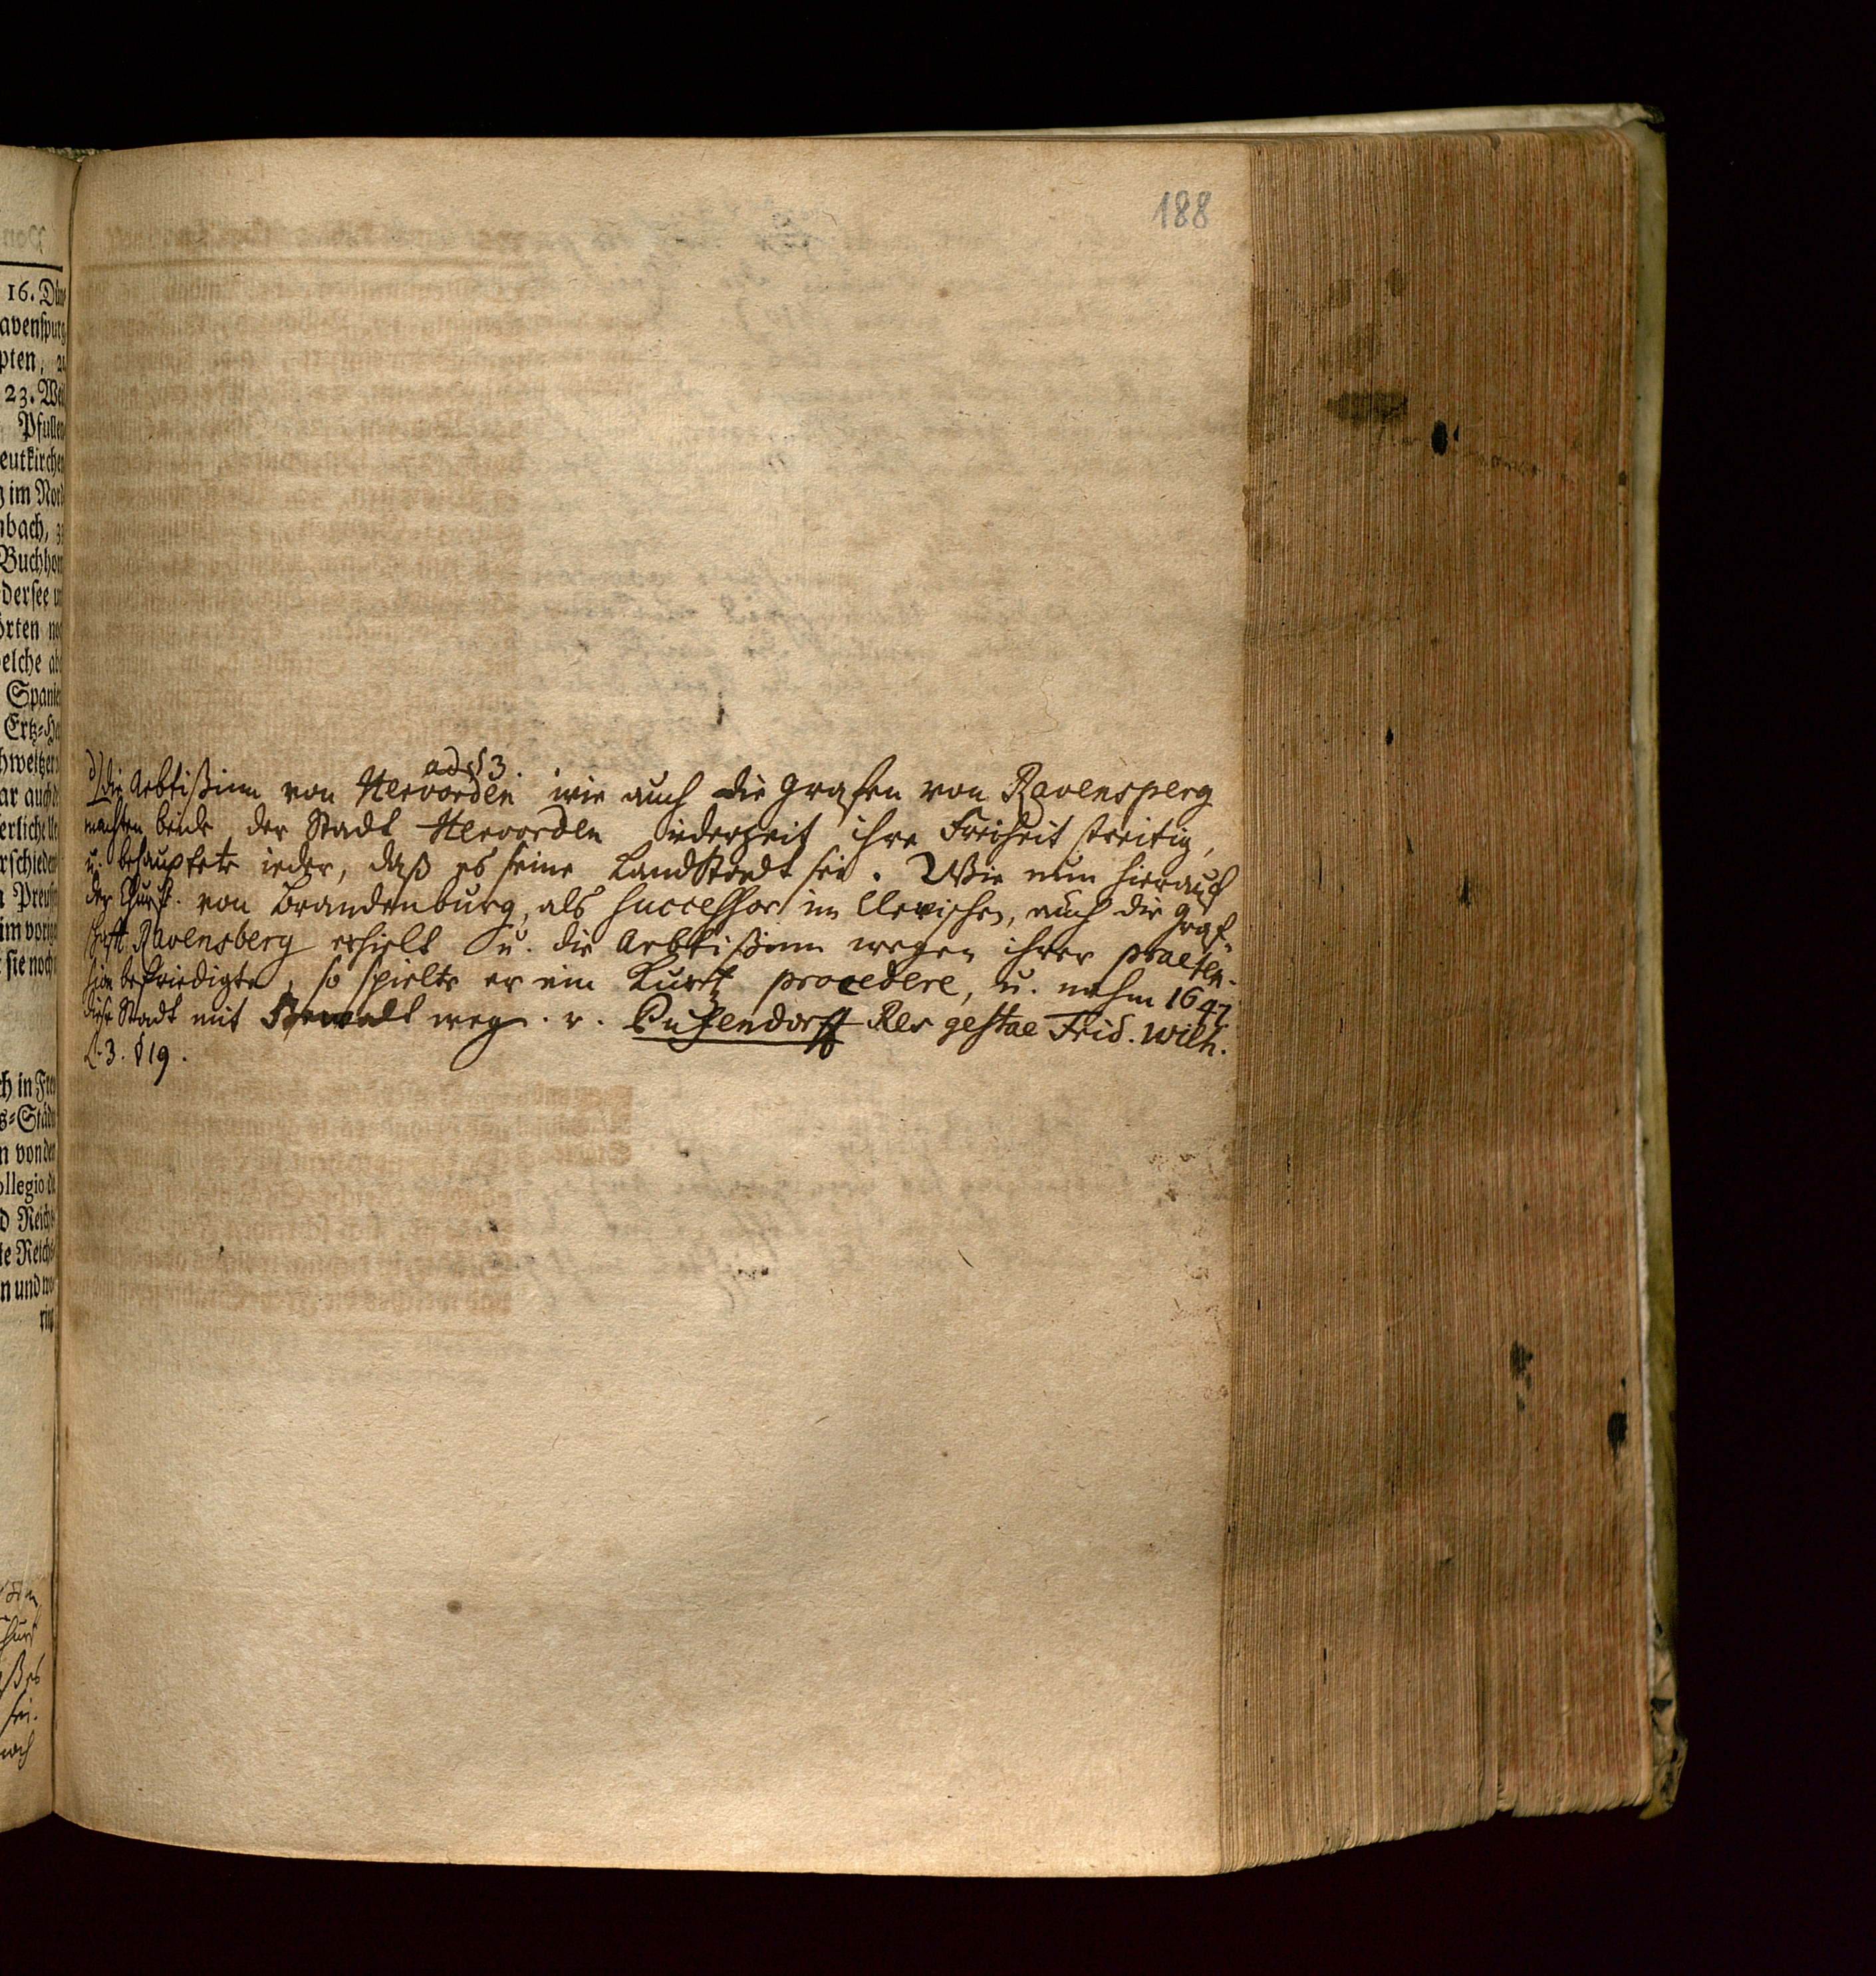 188
16. Dün
avenspurg
pten, 2
23. Weil
Pfullen
eutkirchen
g im Nord
nbach, 3
Buchhorn
dersee u
örten no
elche ab
Spanie
Ertz-He
hweitzer
ar auch
erliche
rschieden
n Preuss
im vorige
sie noch
ch in Fre
s-Städt
n von der
ollegio d
d Reichs
te Reichs
n und wo
ad §3.
d) die Aebtißinn von Hervorden wie auch die Grafen von Ravensperg
machten beide der Stadt Hervorden iederzeit ihre Freiheit streitig,
u. behauptete ieder, daß es seine LandStadt sei. Wie nun hierauf
der Churf. von Brandenburg, als successor im Clevischen, auch die Graf-
schafft Ravensberg erhielt u. die Aebtißinn wegen ihrer praeten-
sion befriedigte, so spielte er ein Kurtz procedere, u. nahm 1647
diese Stadt mit Gewalt weg. v. Pufendorff Res gestae Frid. Wilh.
L. 3. §19.